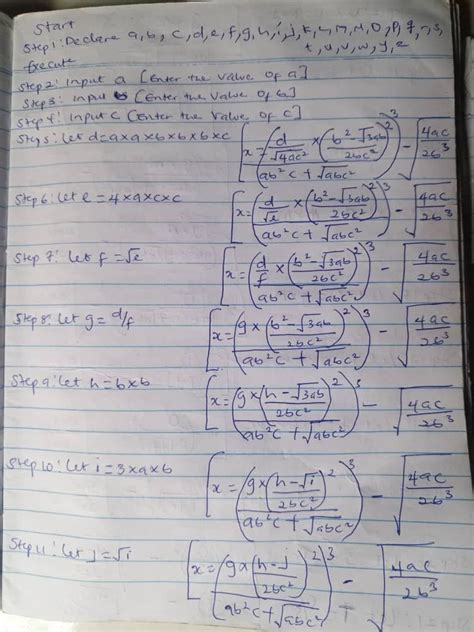 Start
Step 1: Declare a, b, c, d, e, f, g, h, i, j, k, l, m, n, o, p, q, r, s,
t, u, v, w, y, z
Execute
Step 2: Input a [Enter the value of a]
Step 3: Input b [Enter the value of b]
Step 4: Input c [Enter the value of c]
Step 5: Let d=a×a×b×b×b×c [x=((d/√4ac² × ((b²-√3ab)/2bc²)²)/(ab²c+√abc²))³ - √(4ac/2b³)
Step 6: Let e=4×a×c×c [x=((d/√e × ((b²-√3ab)/2bc²)²)/(ab²c+√abc²))³ - √(4ac/2b³)
Step 7: Let f=√e [x=((d/f × ((b²-√3ab)/2bc²)²)/(ab²c+√abc²))³ - √(4ac/2b³)
Step 8: Let g=d/f [x=((g×((b²-√3ab)/2bc²)²)/(ab²c+√abc²))³ - √(4ac/2b³)
Step 9: Let h=b×b [x=((g×((h-√3ab)/2bc²)²)/(ab²c+√abc²))³ - √(4ac/2b³)
Step 10: Let i=3×a×b [x=((g×((h-√i)/2bc²)²)/(ab²c+√abc²))³ - √(4ac/2b³)
Step 11: Let j=√i [x=((g×((h-j)/2bc²)²)/(ab²c+√abc²))³ - √(4ac/2b³)